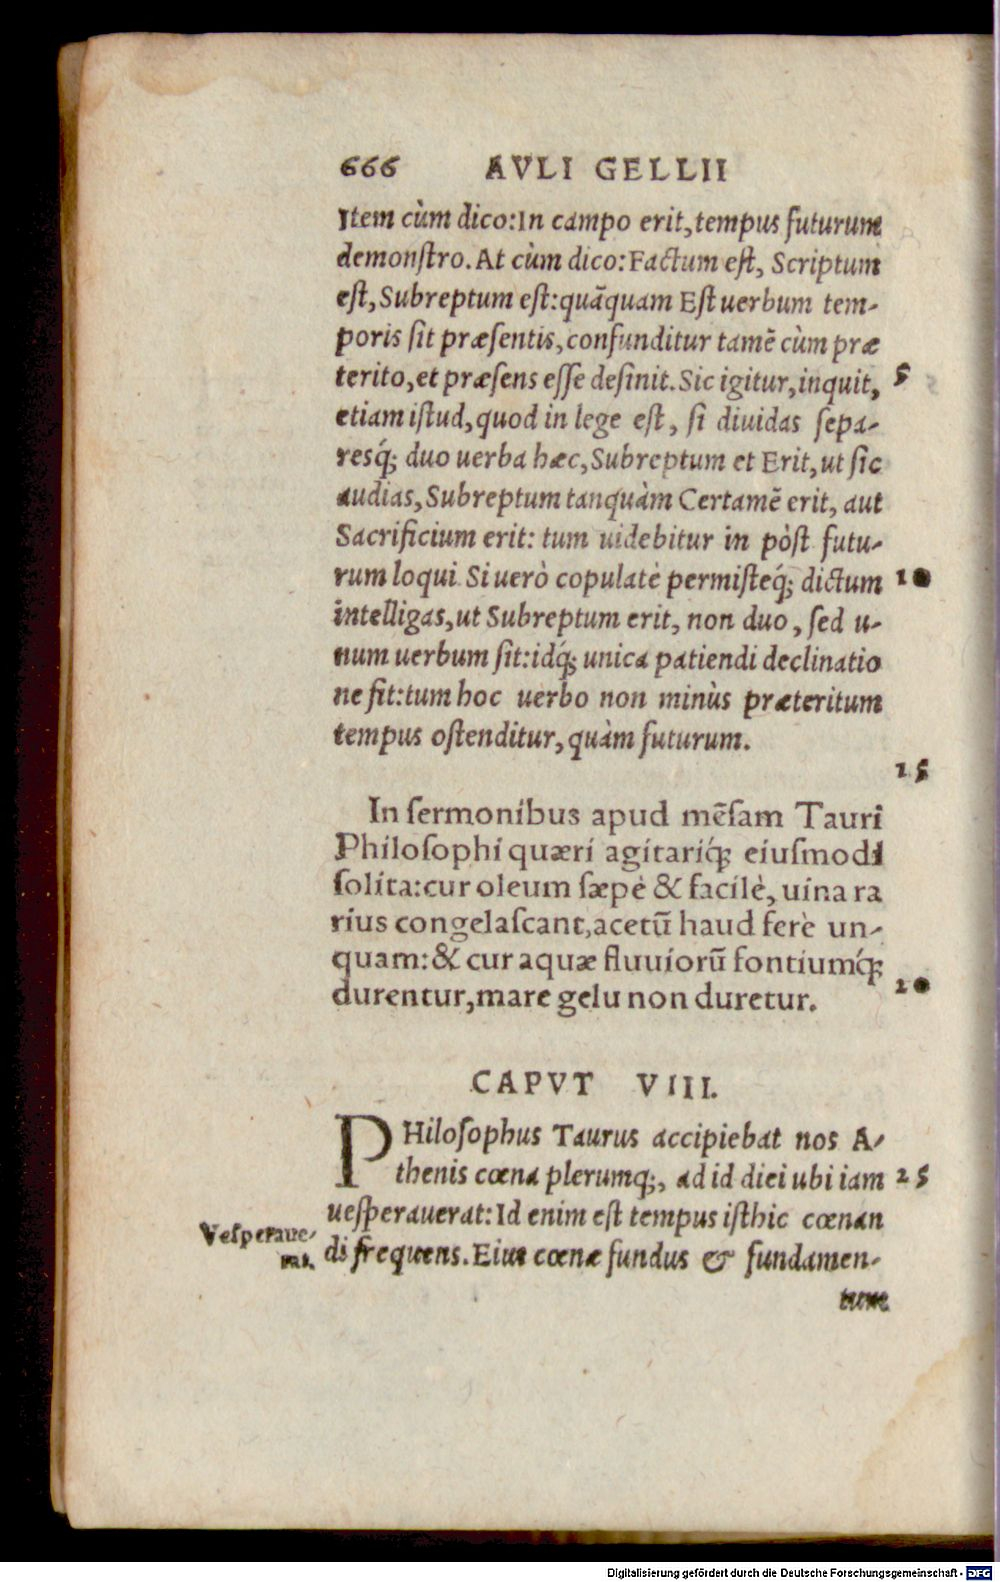 666 AVLI GELLII
Item cùm dico:In campo erit,tempus futurum
demonſtro.At cùm dico:Factum eſt, Scriptum
eſt,Subreptum eſt:quãquam Eſt uerbum tem-
poris ſit præſentis,confunditur tamẽ cùm præ
terito,et præſens eſſe deſinit.Sic igitur,inquit, 5
etiam iſtud,quod in lege eſt, ſi diuidas ſepa-
resq́; duo uerba hæc,Subreptum et Erit,ut ſic
audias,Subreptum tanquàm Certamẽ erit, aut
Sacrificium erit: tum uidebitur in pòſt futu-
rum loqui. Si uerò copulatè permiſteq́; dictum 10
intelligas,ut Subreptum erit, non duo, ſed u-
num uerbum ſit:idq́; unica patiendi declinatio
ne fit:tum hoc uerbo non minùs præteritum
tempus oſtenditur,quàm futurum.
15
In ſermonibus apud mẽſam Tauri
Philoſophi quæri agitariq́; eiuſmodi
ſolita:cur oleum ſæpè & facilè, uina ra
rius congelaſcant,acetũ haud ferè un-
quam:& cur aquæ fluuiorũ fontiumq́;
durentur,mare gelu non duretur. 20
CAPVT VIII.
PHiloſophus Taurus accipiebat nos A-
thenis cœna plerumq;, ad id diei ubi iam 25
ueſperauerat:Id enim eſt tempus iſthic cœnan
Veſperaue-
rat.
di frequens.Eius cœnæ fundus & fundamen-
tum
Digitalisierung gefördert durch die Deutsche Forschungsgemeinschaft - DFG